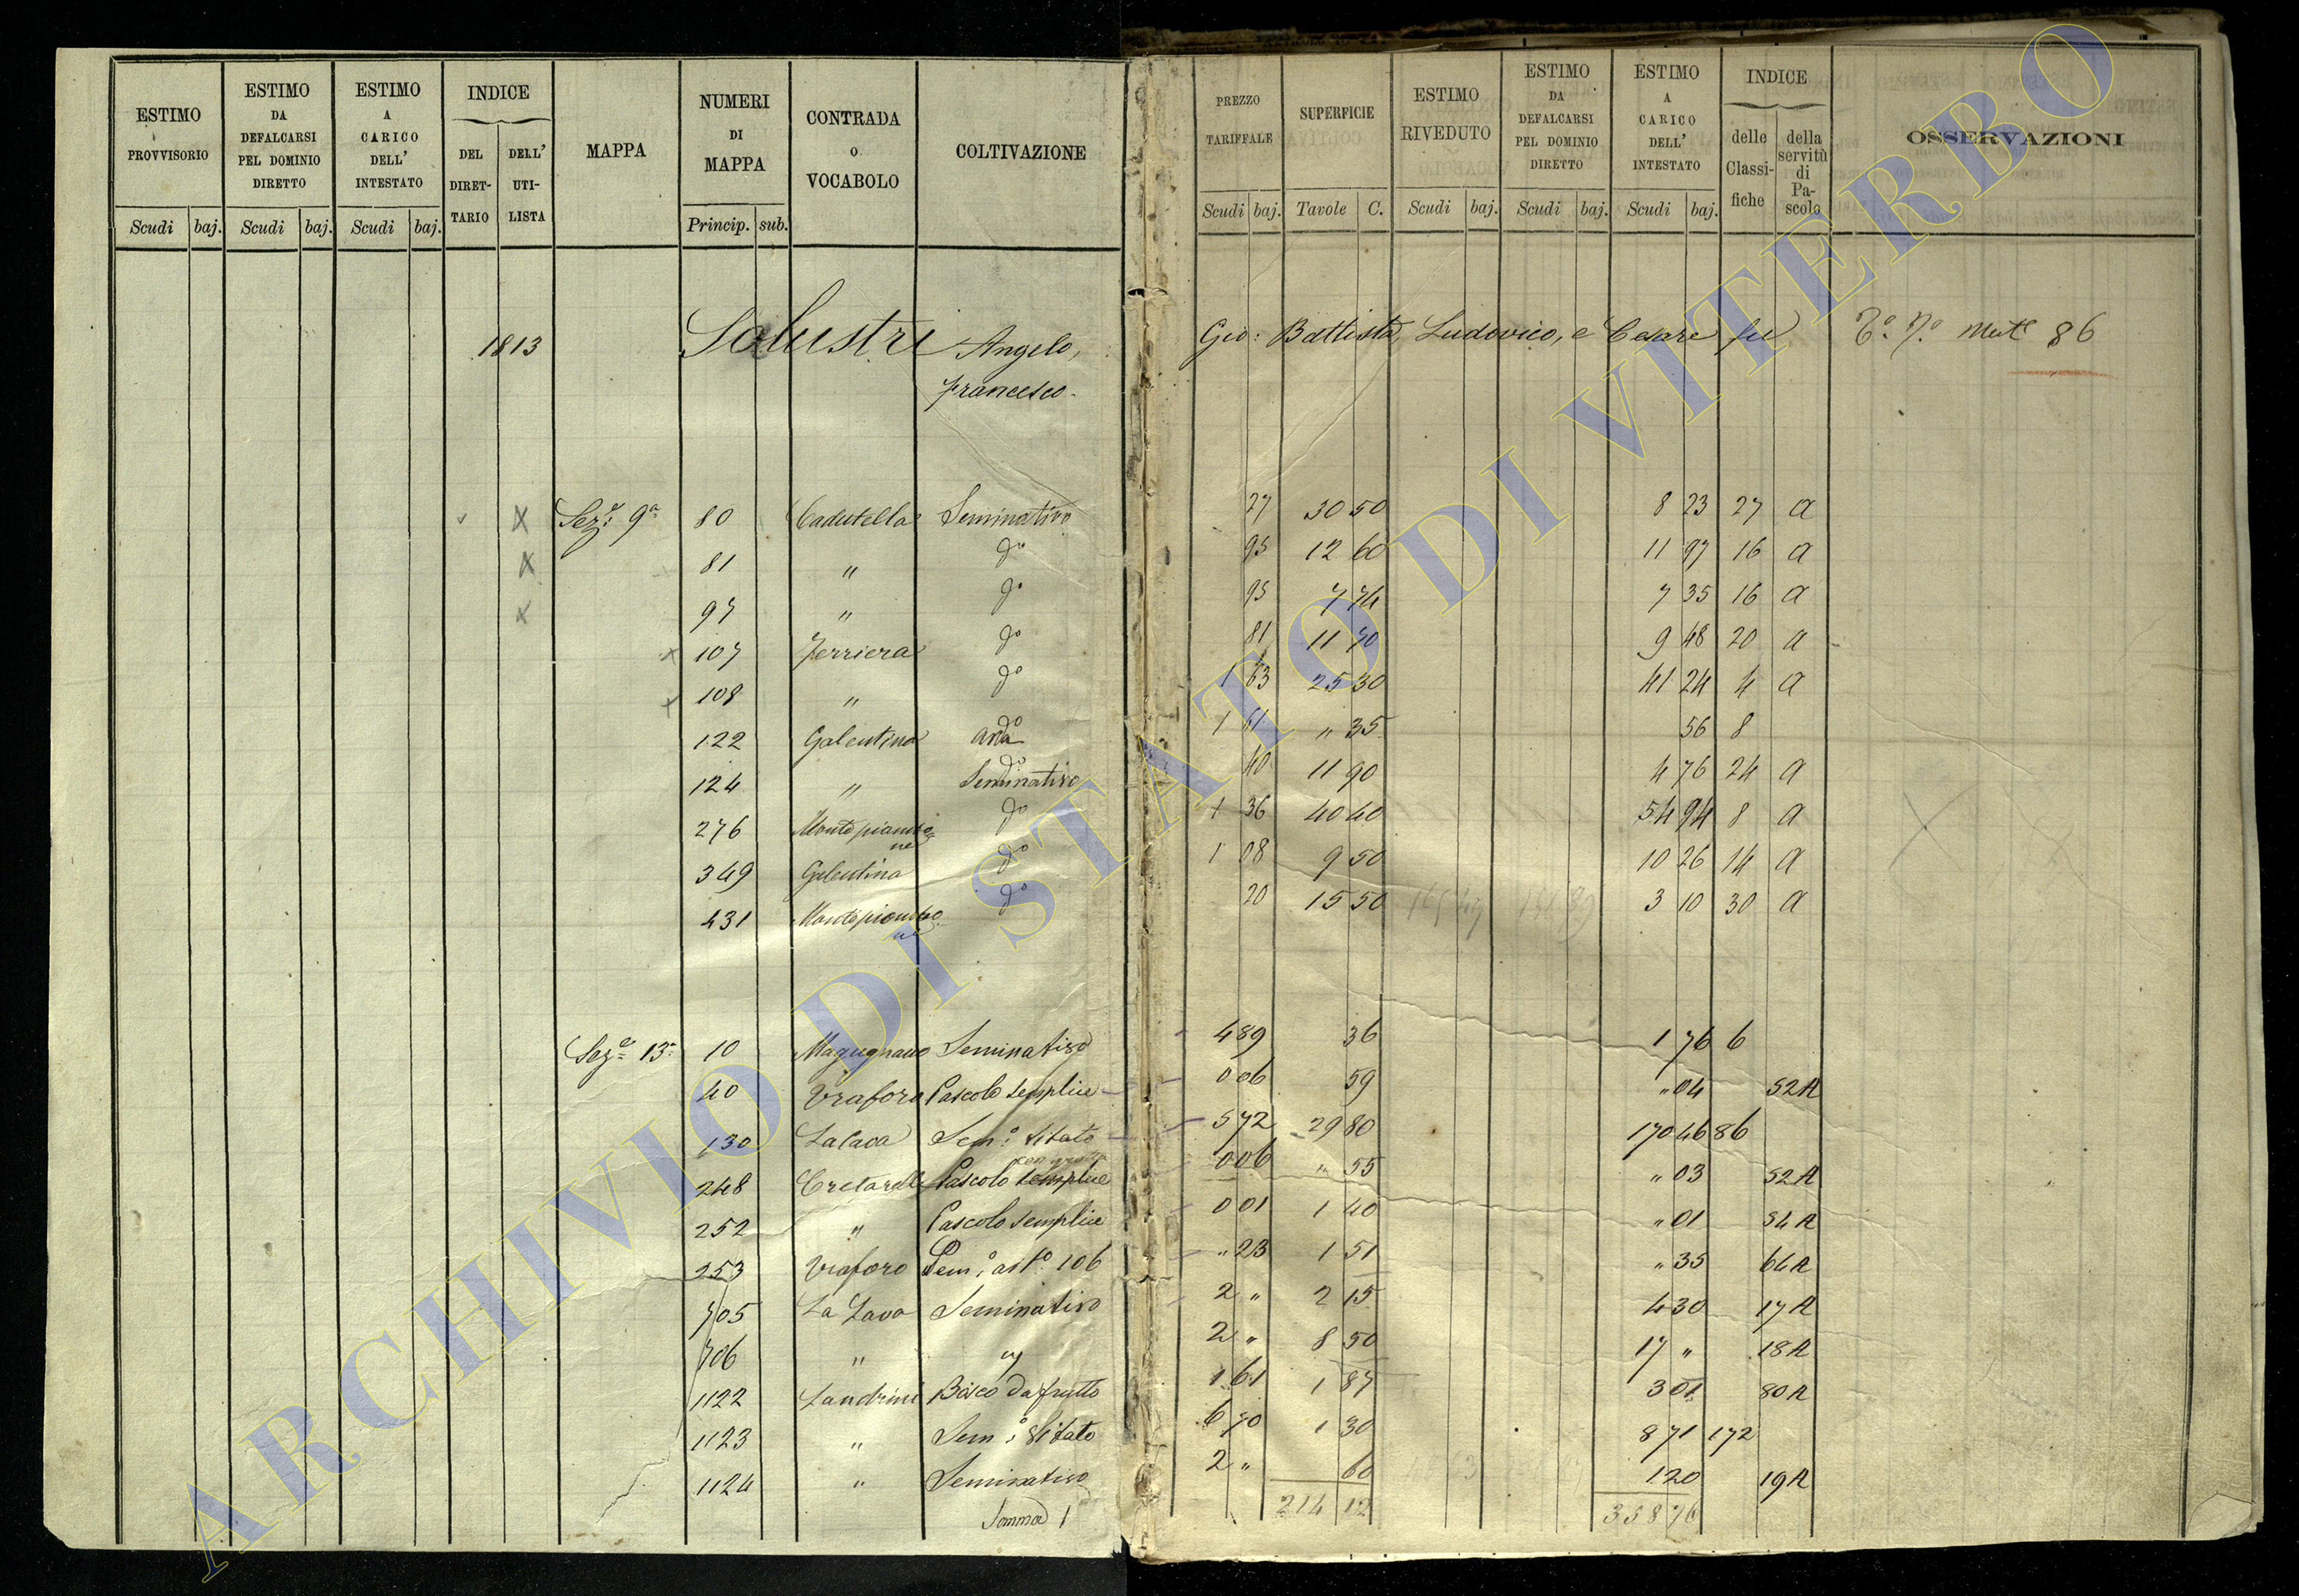 ESTIMO PROVVISORIO
Scudi baj.
ESTIMO DA DEFALCARSI PEL DOMINIO DIRETTO
Scudi baj.
ESTIMO A CARICO DELL' INTESTATO
Scudi baj.
INDICE
DEL DIRET- TARIO
DELL' UTI- LISTA
MAPPA
NUMERI DI MAPPA
Princip. sub.
CONTRADA o VOCABOLO
COLTIVAZIONE
PREZZO TARIFFALE
Scudi baj.
SUPERFICIE
Tavole C.
ESTIMO RIVEDUTO
Scudi baj.
ESTIMO DA DEFALCARSI PEL DOMINIO DIRETTO
Scudi baj.
ESTIMO A CARICO DELL' INTESTATO
Scudi baj.
INDICE
delle Classi- fiche
della servitù di Pa- scolo
OSSERVAZIONI
1813 Salustri Angelo, Gio: Battista, Ludovico, e Cesare fu 86
Francesco
Sez.e 9a 80 Cadutella Seminativo 27 30 50 8 23 27 a
81 " do 95 12 60 11 97 16 a
97 " do 95 7 74 7 35 16 a
107 Ferriera do 81 11 70 9 48 20 a
108 " do 1 63 25 30 41 24 4 a
122 Galentina do 1 61 " 35 56 8
124 " Seminativo 40 11 90 4 76 24 a
276 do 1 36 40 40 54 94 8 a
349 Galentina do 1 08 9 50 10 26 14 a
431 do 20 15 50 3 10 30 a
Sez.e 13a 10 Magugnano Seminativo 4 89 36 1 76 6
40 Pascolo semplice 0 06 59 " 04 52 A
130 La Cava Sem.o Vitato 5 72 29 80 170 46 86
248 Pascolo semplice 0 06 " 55 " 03 52 A
252 " Pascolo semplice 0 01 1 40 " 01 54 A
253 Viaforo Sem.o 106 " 23 1 51 " 35 64 A
705 La Cava Seminativo 2 " 2 15 4 30 17 A
706 " " 2 " 8 50 17 " 18 A
1122 Landrini Bosco da frutto 1 61 1 87 3 01 80 A
1123 " Sem.o Vitato 6 70 1 30 8 71 172
1124 " Seminativo 2 " 60 1 20 19 A
Somma 214 12 358 76
ARCHIVIO DI STATO DI VITERBO